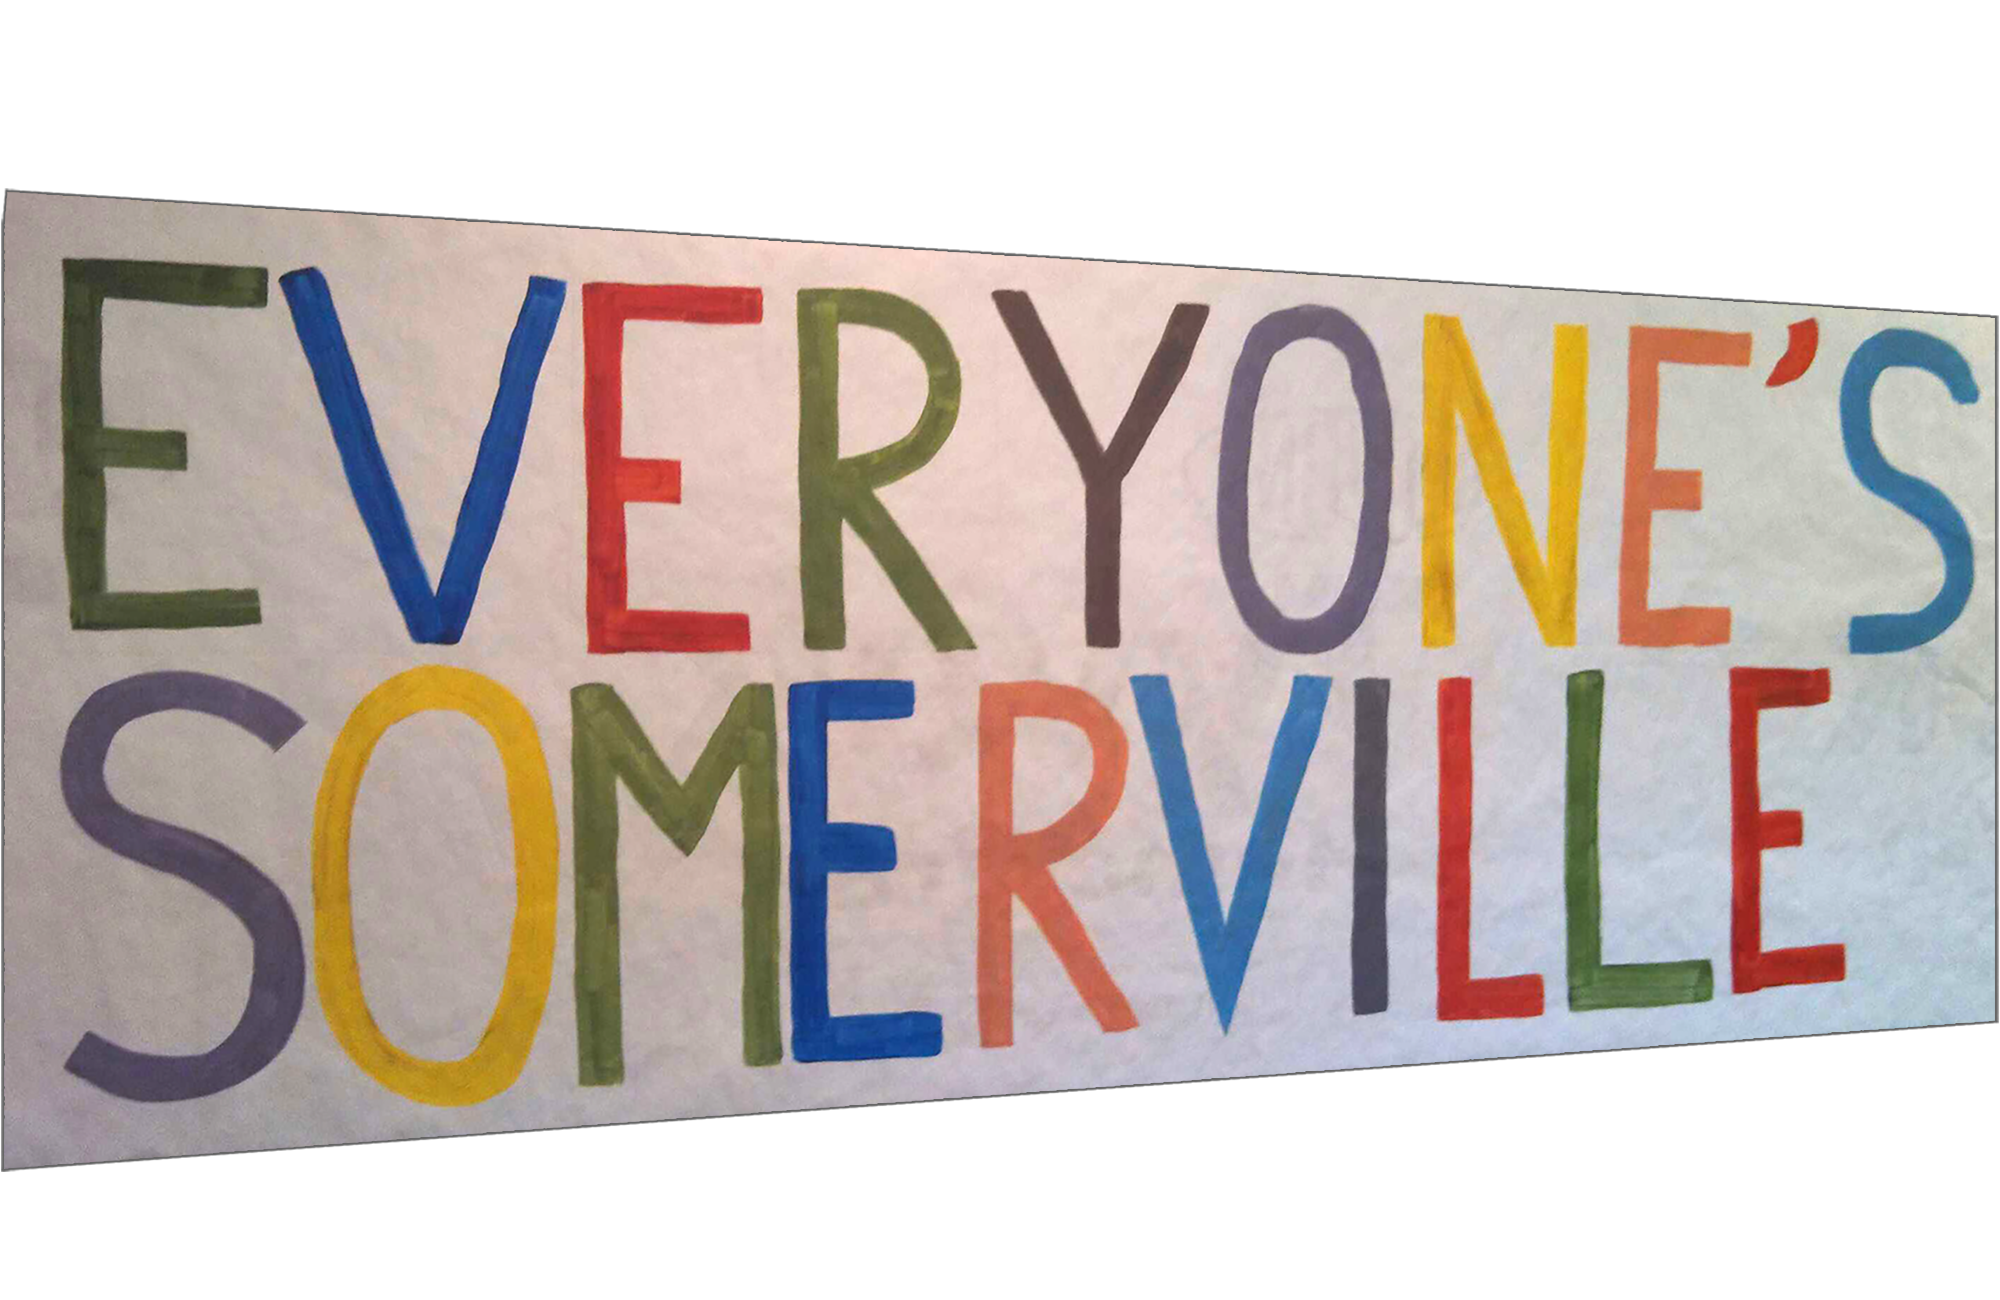 EVERYONE'S
SOMERVILLE